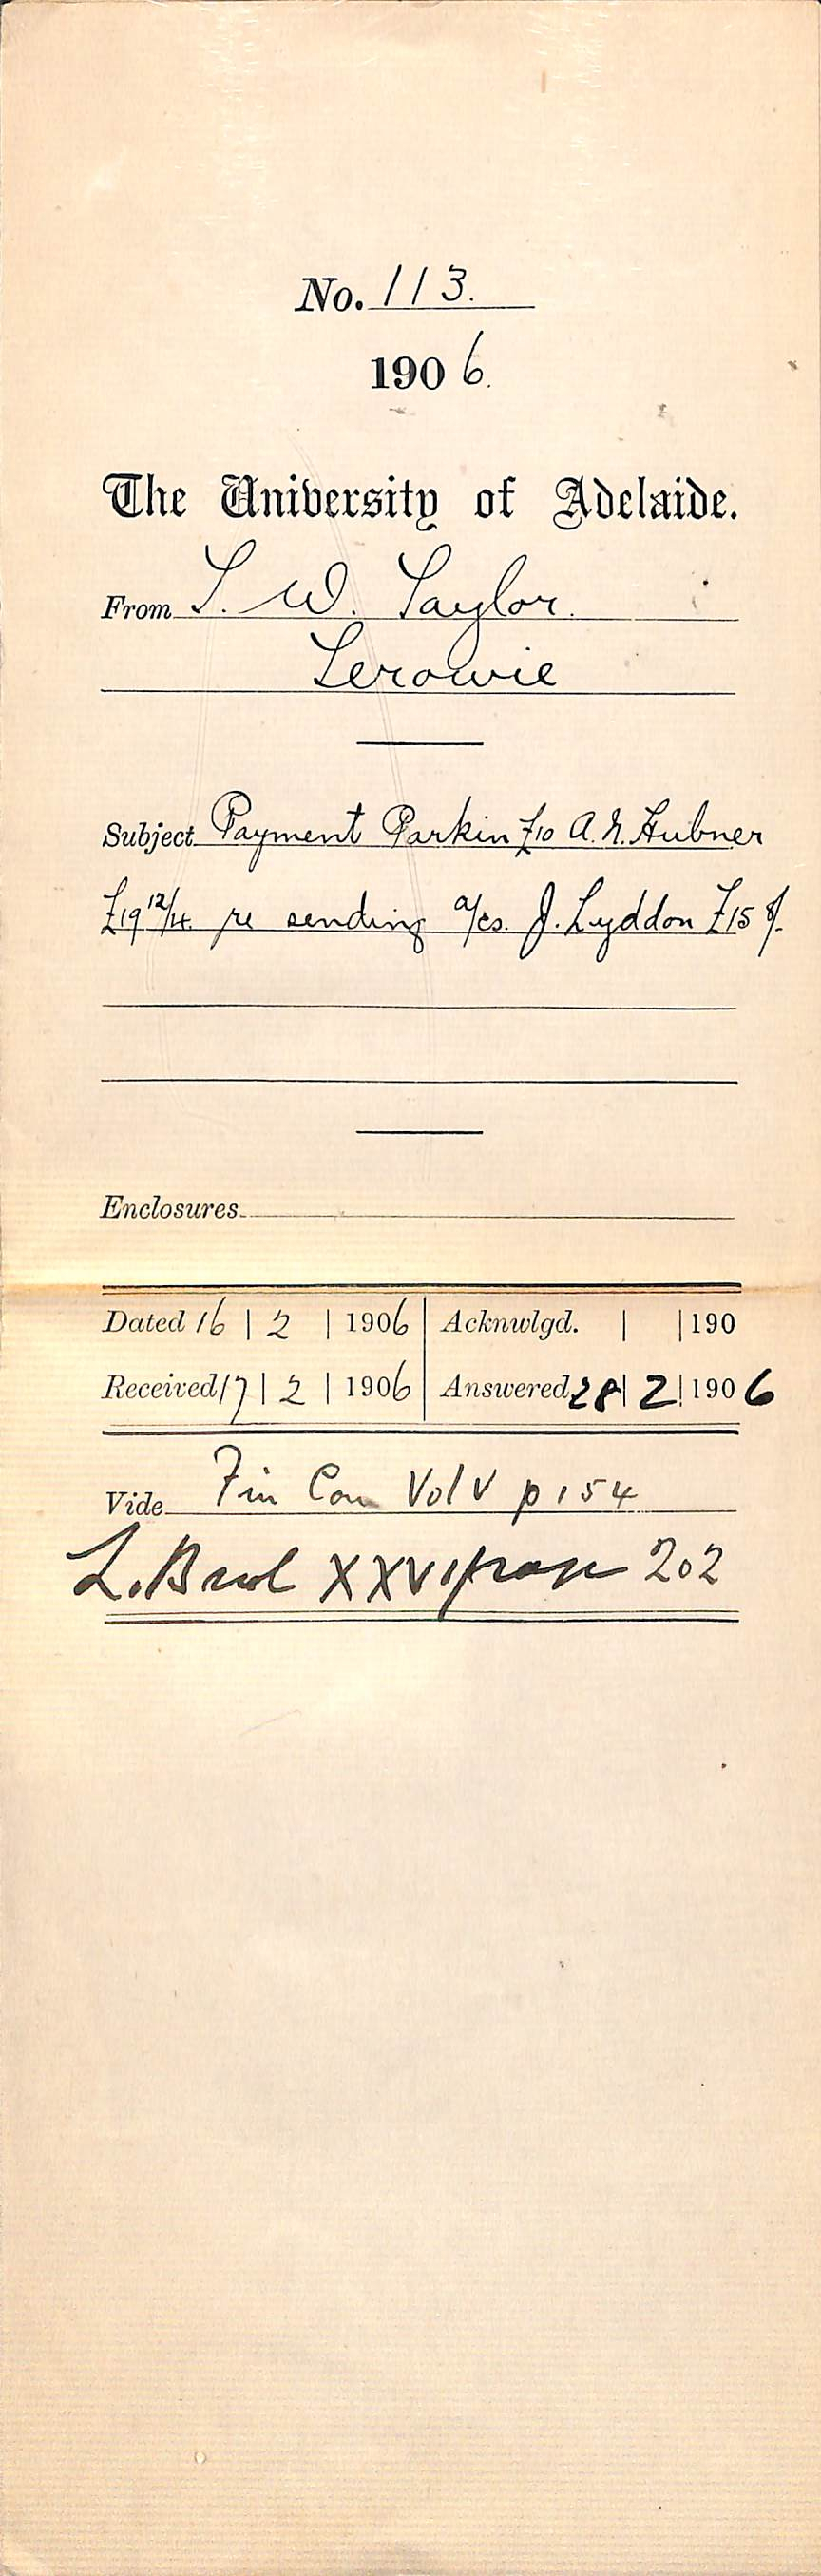 No. 113.
1906.
The University of Adelaide.
From T. W. Taylor.
Terowie
Subject Payment Parkin £10 A. N. Hubner
£19 12/4. re sending a/cs. J. Lyddon £15
Enclosures
Dated 16 | 2 | 1906 Acknwlgd. | | 190
Received 17 | 2 | 1906 Answered 28 | 2 | 1906
Vide Fin Com Vol V p 154
L. Book XXVI page 202